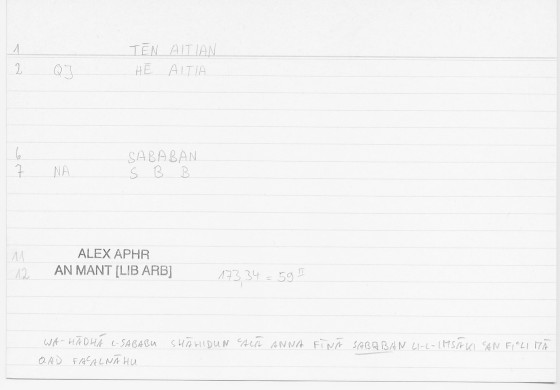 1 TĒN AITIAN
2 QJ HĒ AITIA
6 SABABAN
7 NA S B B
11 ALEX APHR
12 AN MANT [LIB ARB] 173,34 = 59
WA-HĀDHĀ L-SABABU SHĀHIDUN ʿALĀ ANNA FĪNĀ SABABAN LI-L-IMSĀKI ʿAN FIʿLI MĀ
QAD FAʿALNĀHU